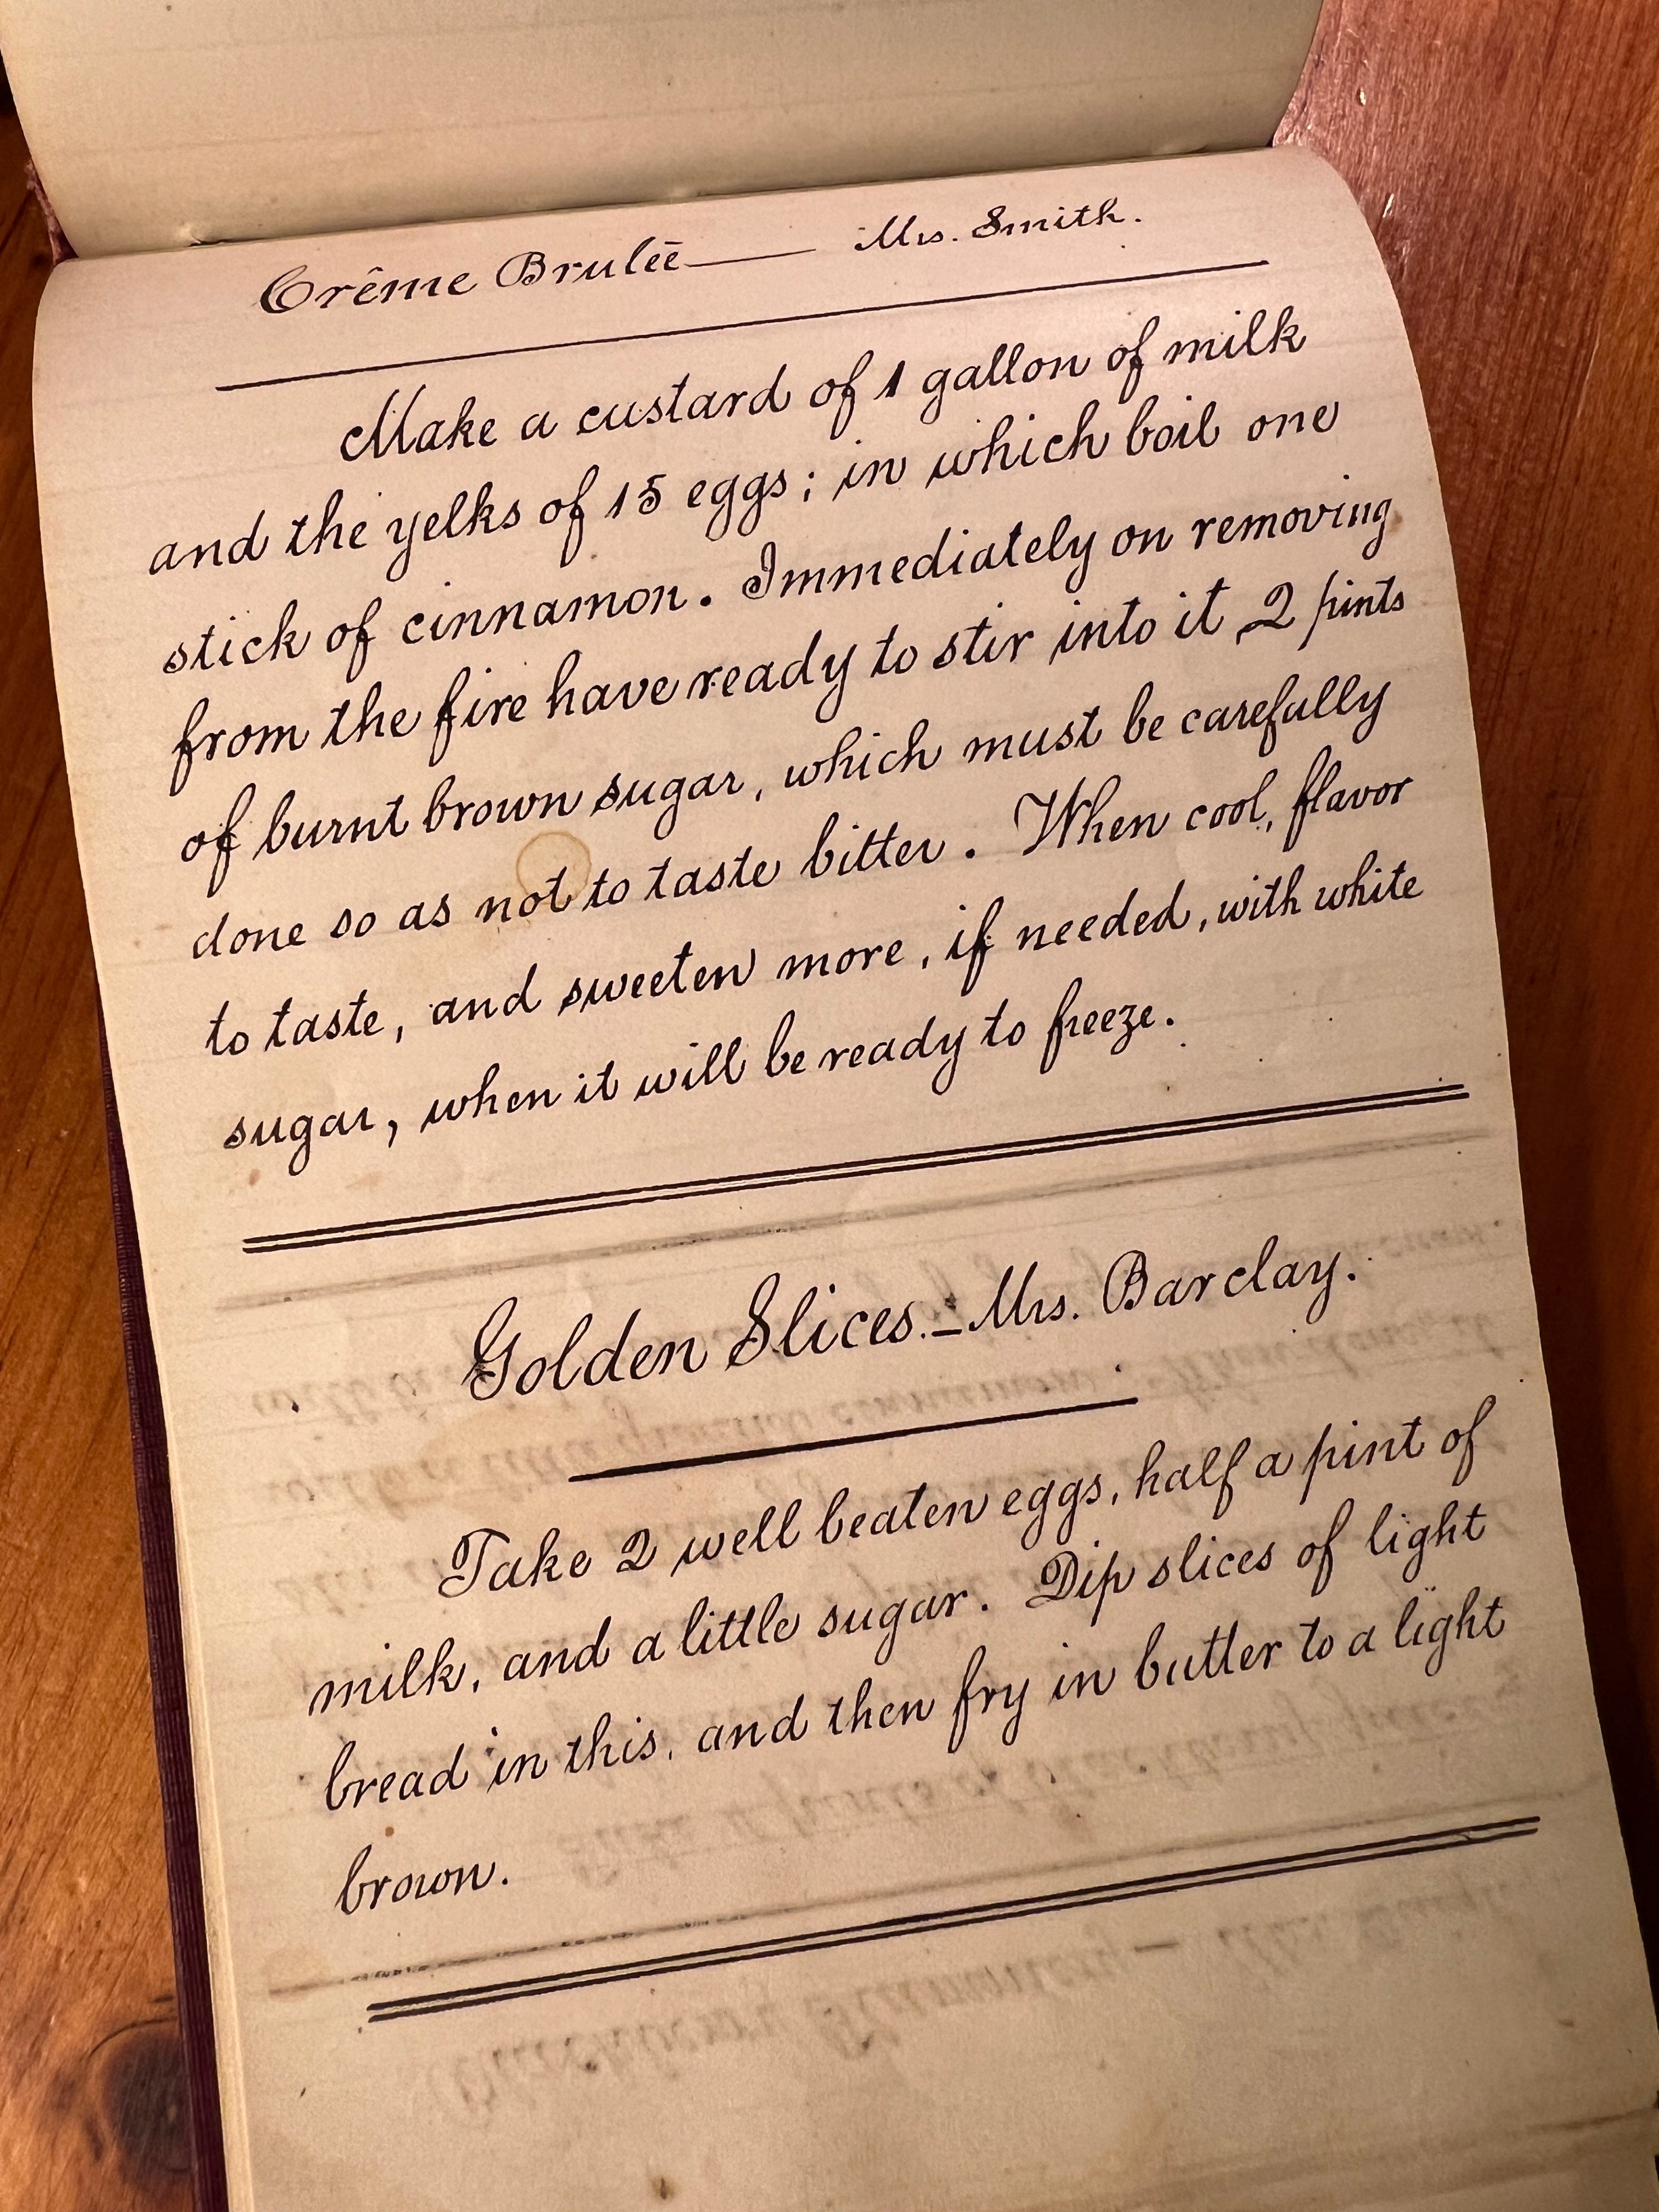 Crême Brulēē — Mrs. Smith.
Make a custard of 1 gallon of milk
and the yelks of 15 eggs; in which boil one
stick of cinnamon. Immediately on removing
from the fire have ready to stir into it 2 pints
of burnt brown sugar, which must be carefully
done so as not to taste bitter. When cool, flavor
to taste, and sweeten more, if needed, with white
sugar, when it will be ready to freeze.
Golden Slices. – Mrs. Barclay.
Take 2 well beaten eggs, half a pint of
milk, and a little sugar. Dip slices of light
bread in this, and then fry in butter to a light
brown.